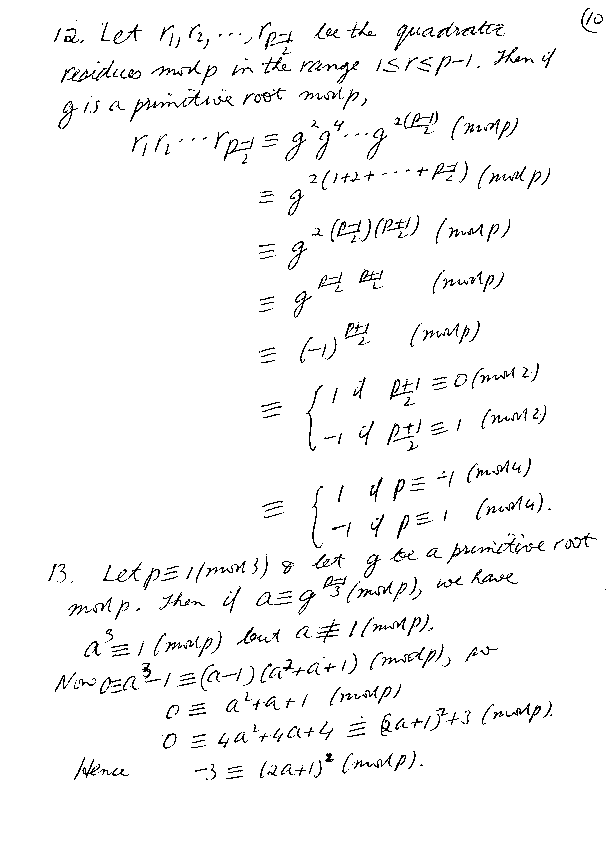 (10
12. Let r₁, r₂, ⋯, r_{(p-1)/2} be the quadratic
residues mod p in the range 1≤r≤p-1. Then if
g is a primitive root mod p,
r₁r₂ ⋯ r_{(p-1)/2} ≡ g²g⁴⋯g^{2((p-1)/2)} (mod p)
≡ g^{2(1+2+⋯+(p-1)/2)} (mod p)
≡ g^{2((p-1)/2)((p+1)/2)} (mod p)
≡ g^{(p-1)/2 (p+1)/2} (mod p)
≡ (-1)^{(p+1)/2} (mod p)
≡ { 1 if (p+1)/2 ≡ 0 (mod 2)
-1 if (p+1)/2 ≡ 1 (mod 2)
≡ { 1 if p ≡ -1 (mod 4)
-1 if p ≡ 1 (mod 4).
13. Let p ≡ 1 (mod 3) & let g be a primitive root
mod p. Then if a ≡ g^{(p-1)/3} (mod p), we have
a³ ≡ 1 (mod p) but a ≢ 1 (mod p).
Now 0≡a³-1 ≡ (a-1)(a²+a+1) (mod p), so
0 ≡ a²+a+1 (mod p)
0 ≡ 4a²+4a+4 ≡ (2a+1)²+3 (mod p).
Hence -3 ≡ (2a+1)² (mod p).